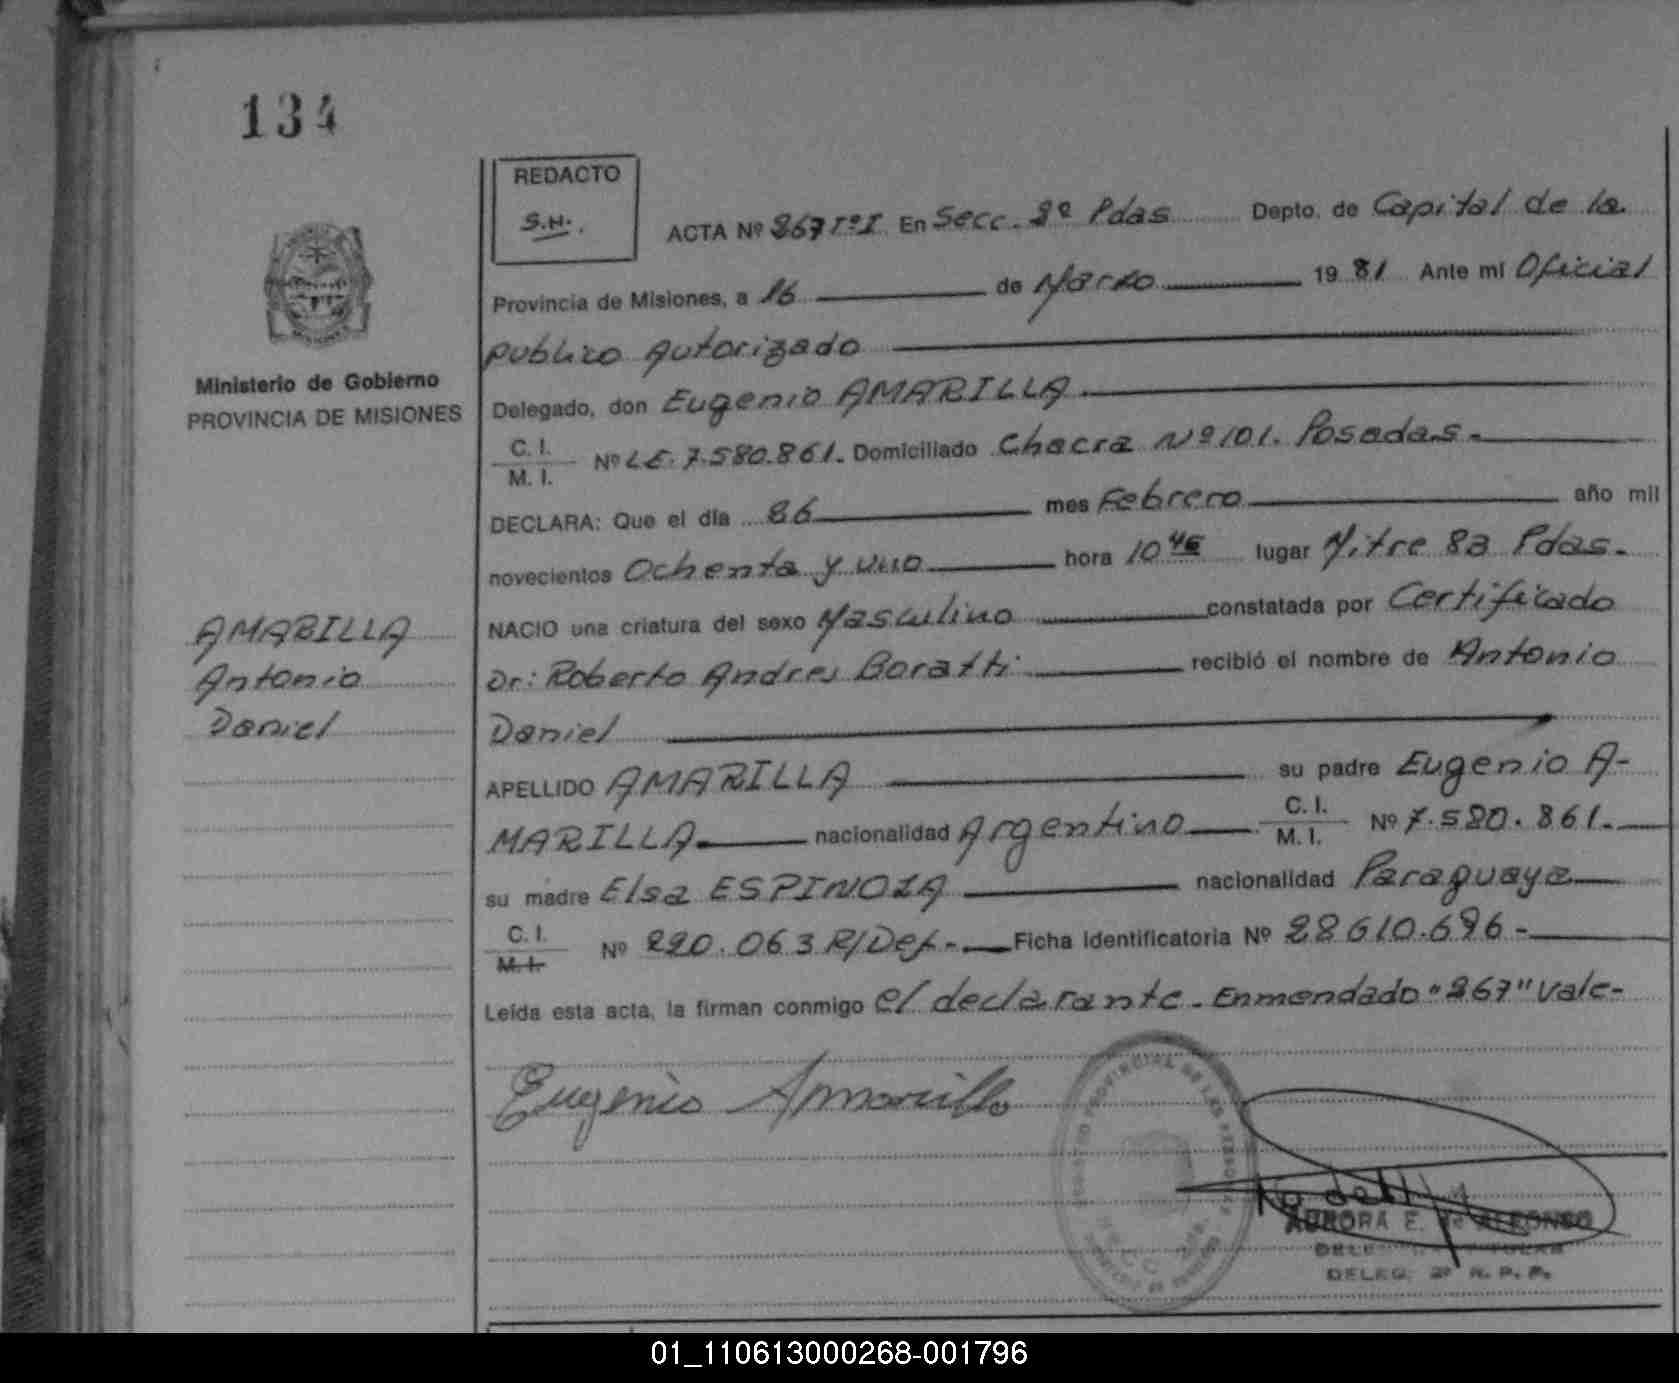 134
REDACTO
S.H.
ACTA Nº 267 Tº I En Secc. 2º Pdas Depto. de Capital de la
Provincia de Misiones, a 16 de Marzo 19 81 Ante mi Oficial
publico Autorizado
Ministerio de Gobierno
PROVINCIA DE MISIONES
Delegado, don Eugenio AMARILLA
C. I.
M. I.
Nº LE. 7.580.861. Domiciliado Chacra Nº 101. Posadas-
DECLARA: Que el día 26 mes Febrero año mil
novecientos Ochenta y uno hora 10 45 lugar Mitre 82 Pdas.
NACIO una criatura del sexo Masculino constatada por Certificado
AMARILLA
Antonio
Daniel
Dr: Roberto Andres Boratti recibió el nombre de Antonio
Daniel
APELLIDO AMARILLA su padre Eugenio A-
MARILLA nacionalidad Argentino C. I.
M. I. Nº 7.580.861.
su madre Elsa ESPINOZA nacionalidad Paraguaya
C. I.
M. I.
Nº 220.063 R/Def.- Ficha Identificatoria Nº 28610.696-
Leída esta acta, la firman conmigo el declarante. Enmendado "267" Vale-
Eugenio Amarilla
PROVINCIAL DE LAS
AURORA E. de ALFONSO
DELEG. 2º R. P. P.
01_110613000268-001796